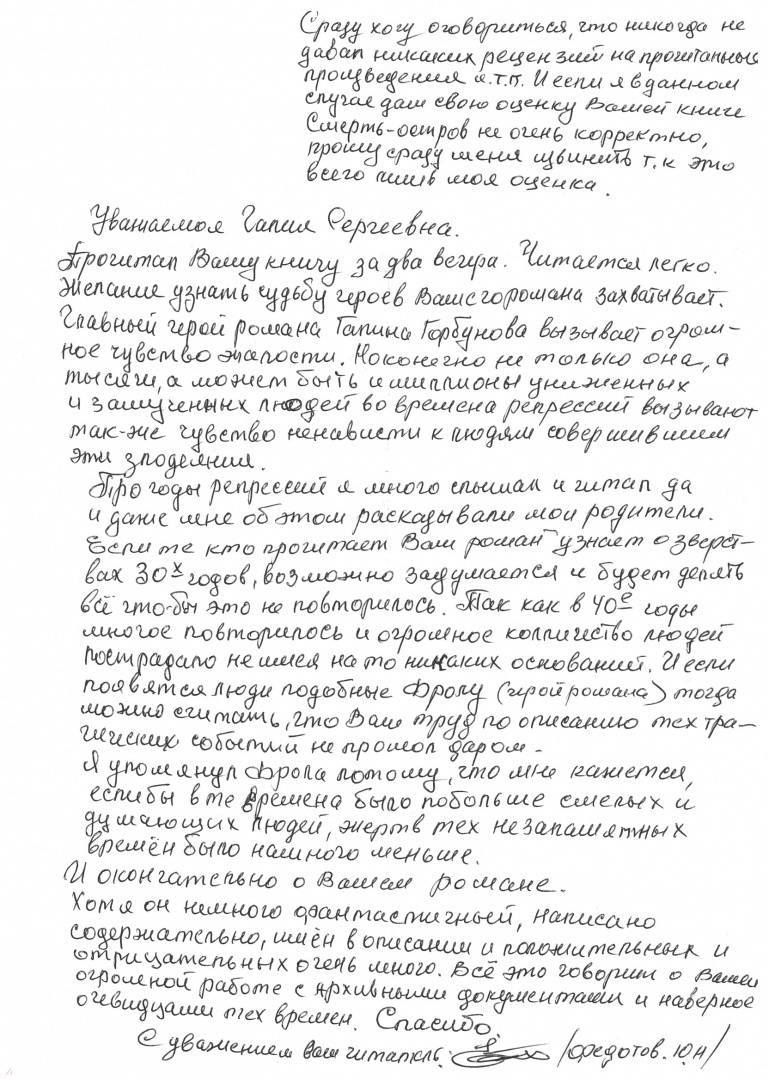 Сразу хочу оговориться, что никогда не
давал никаких рецензий на прочитанные
произведения и.т.п. И если я в данном
случае дам свою оценку Вашей книге
Смерть-остров не очень корректно,
прошу сразу меня извинить т.к это
всего лишь моя оценка.
Уважаемая Галина Сергеевна.
Прочитал Вашу книгу за два вечера. Читается легко.
Желание узнать судьбу героев Вашего романа захватывает.
Главный герой романа Галина Горбунова вызывает огром-
ное чувство жалости. Но конечно не только она, а
тысячи, а может быть и миллионы униженных
и замученных людей во времена репрессий вызывают
так-же чувство ненависти к людям совершившим
эти злодеяния.
Про годы репрессий я много слышал и читал да
и даже мне об этом расказывали мои родители.
Если те кто прочитает Ваш роман узнает о зверст-
вах 30х годов, возможно задумается и будет делать
всё что-бы это не повторилось. Так как в 40е годы
многое повторилось и огромное колличество людей
пострадало не имея на то никаких оснований. И если
появятся люди подобные Фролу (герой романа) тогда
можно считать, что Ваш труд по описанию тех тра-
гических событий не прошол даром.
Я упомянул Фрола потому, что мне кажется,
если бы в те времена было побольше смелых и
думающих людей, жертв тех незапамятных
времён было намного меньше.
И окончательно о Вашем романе.
Хотя он немного фантастичный, написано
содержательно, имён в описании и положительных и
отрицательных очень много. Всё это говорит о Вашей
огромной работе с архивными документами и наверное
очевидцами тех времен. Спасибо.
С уважением ваш читатель. /Федотов.Ю.Н/